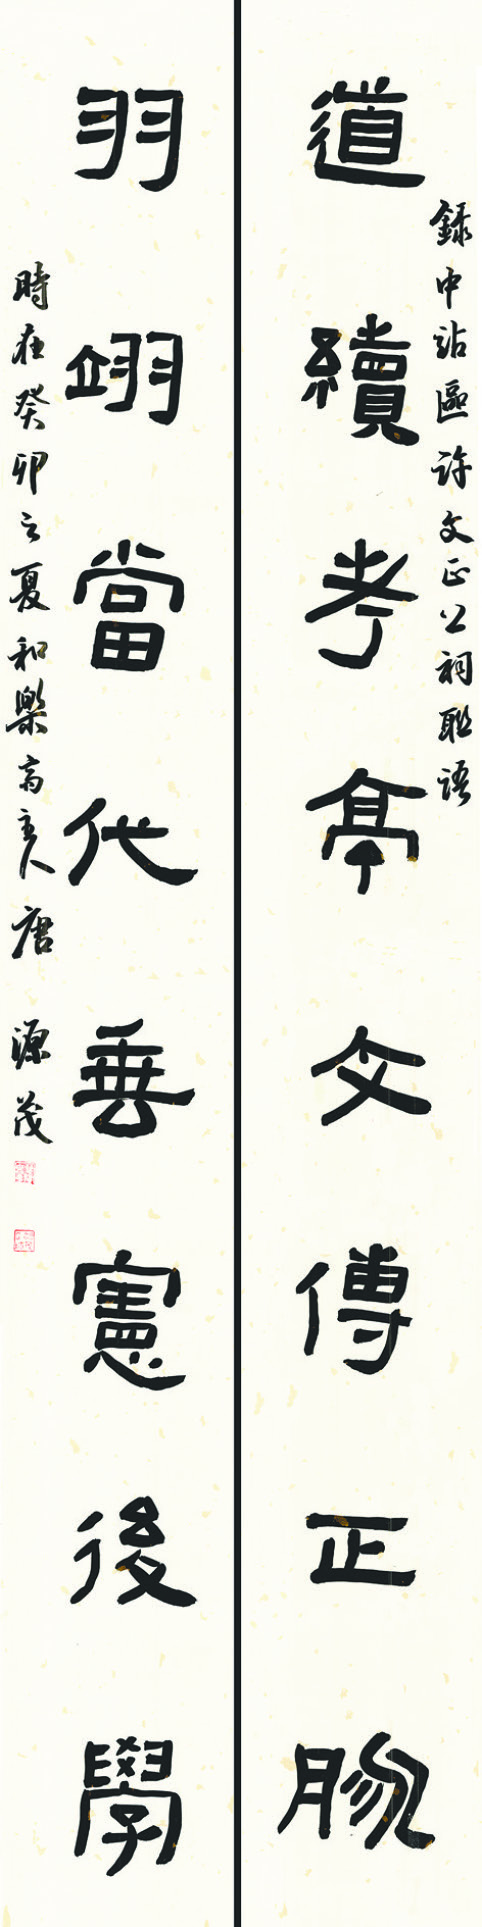 錄中站區許文正公祠聯語
道續考亭文傳正脈
羽翊當代垂憲後學
時在癸卯之夏和樂斋主人唐源茂